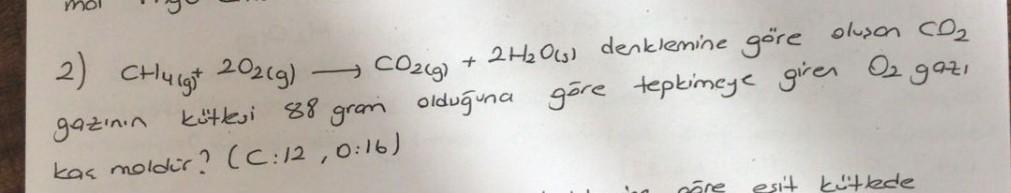 mol
2) CH4(g) + 2O2(g) → CO2(g) + 2H2O(s) denklemine göre oluşan CO2
gazının kütlesi 88 gram olduğuna göre tepkimeye giren O2 gazı
kaç moldür? (C:12, O:16)
göre eşit kütlede